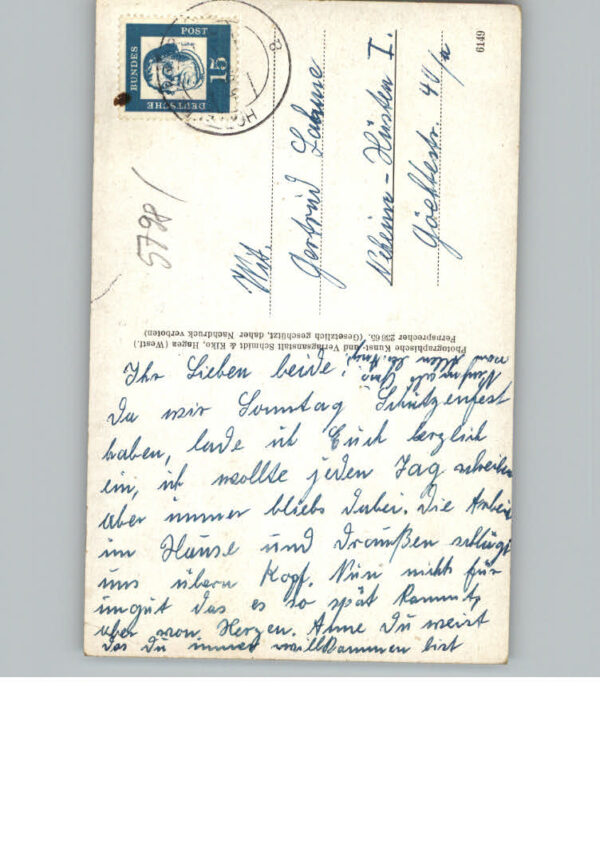 DEUTSCHE
BUNDES
POST
15
8
5798/
Gertrud
Neheim-Hüsten I.
Goethestr. 40/a
6149
Photographische Kunst- und Verlagsanstalt Schmidt & Kiko, Hagen (Westf.)
Fernsprecher 239 65. (Gesetzlich geschützt, daher Nachdruck verboten)
Ihr Lieben beide!
Da wir Sonntag Schützenfest
haben, lade ich Euch herzlich
ein, ich wollte jeden Tag schreiben
aber immer bliebs dabei. Die Arbeit
im Hause und draußen schlägt
uns übern Kopf. Nun nichts für
ungut das es so spät kommt,
aber von Herzen. Anne Du weist
das du immer willkommen bist
von allen